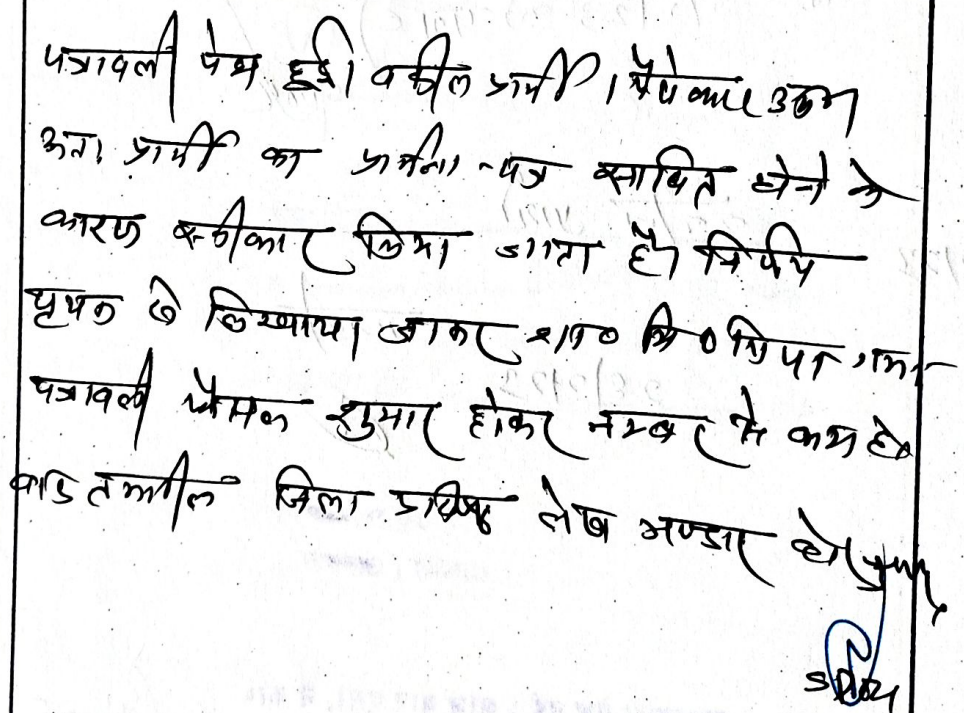 पत्रावली पेश हुई। वकील प्रार्थी। पैरोकार उप०
अतः प्रार्थी का प्रार्थना-पत्र साबित होने के
कारण स्वीकार किया जाता है। निर्णय
पृथक से लिखाया जाकर शा० मि० किया गया
पत्रावली फैसल शुमार होकर नम्बर से कम हो
बाद तकमील जिला अभिलेख लेख भण्डार हो
SDO